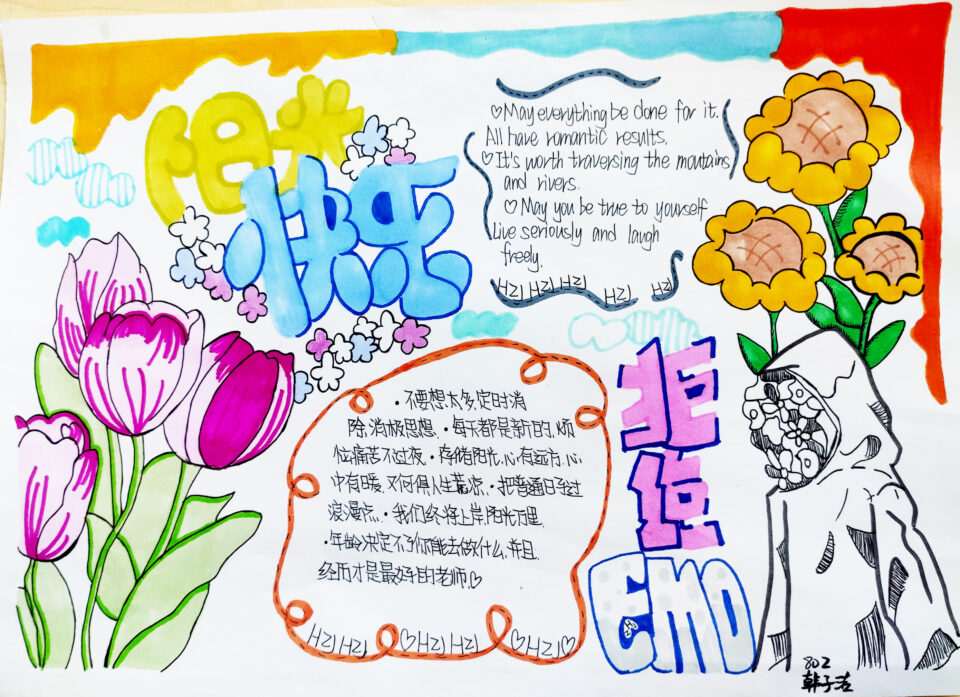 阳光
快乐
♡May everything be done for it.
All have romantic results.
♡It's worth traversing the mountains
and rivers.
♡May you be true to yourself
Live seriously and laugh
freely.
HZJ HZJ HZJ HZJ HZJ
·不要想太多,定时消
除消极思想.·每天都是新的,烦
恼痛苦不过夜.·存储阳光,心有远方.心
中有暖.又何惧人生荒凉.·把普通日子过
浪漫点.·我们终将上岸,阳光万里.
·年龄决定不了你能去做什么,并且
经历才是最好的老师♡
HZJ HZJ ♡HZJ HZJ ♡HZJ♡
拒绝
EMO
802
韩子洁